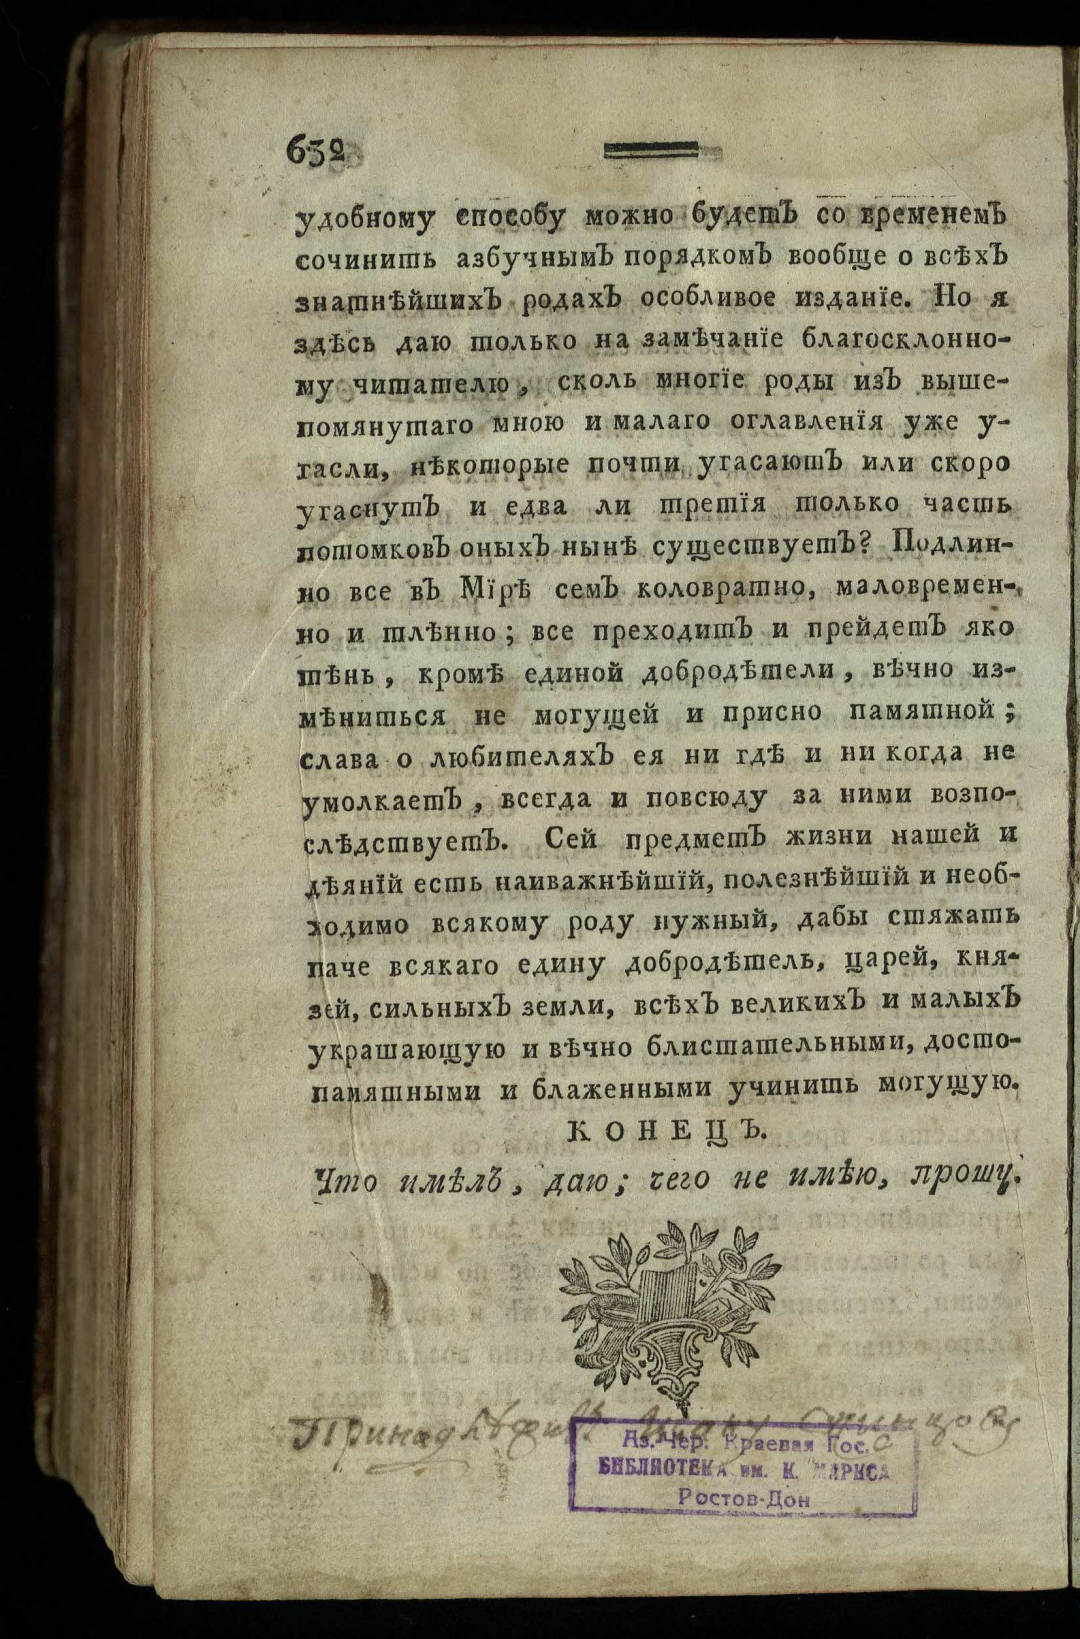 632
удобному способу можно будетЪ со временемЪ
сочинить азбучнымЪ порядкомЪ вообще о всѣхЪ
знатнѣйшихЪ родахЪ особливое изданїе. Но я
здѣсь даю только на замѣчанїе благосклонно-
му читателю, сколь многїе роды изЪ выше-
помянутаго мною и малаго оглавленїя уже у-
гасли, нѣкоторые почти угасаютЪ или скоро
угаснутЪ и едва ли третїя только часть
потомковЪ оныхЪ нынѣ существуетЪ? Подлин-
но все вЪ Мїрѣ семЪ коловратно, маловремен-
но и тлѣнно; все преходитЪ и прейдетЪ яко
тѣнь, кромѣ единой добродѣтели, вѣчно из-
мѣниться не могущей и присно памятной;
слава о любителяхЪ ея ни гдѣ и ни когда не
умолкаетЪ, всегда и повсюду за ними возпо-
слѣдствуетЪ. Сей предметЪ жизни нашей и
дѣянїй есть наиважнѣйшїй, полезнѣйшїй и необ-
ходимо всякому роду нужный, дабы стяжать
паче всякаго едину добродѣтель, царей, кня-
зей, сильныхЪ земли, всѣхЪ великихЪ и малыхЪ
украшающую и вѣчно блистательными, досто-
памятными и блаженными учинить могущую.
КОНЕЦЪ.
Что имѣлЪ, даю; чего не имѣю, прошу.
Аз.-Чер. Краевая Гос.
БИБЛИОТЕКА им. К. МАРКСА
Ростов-Дон